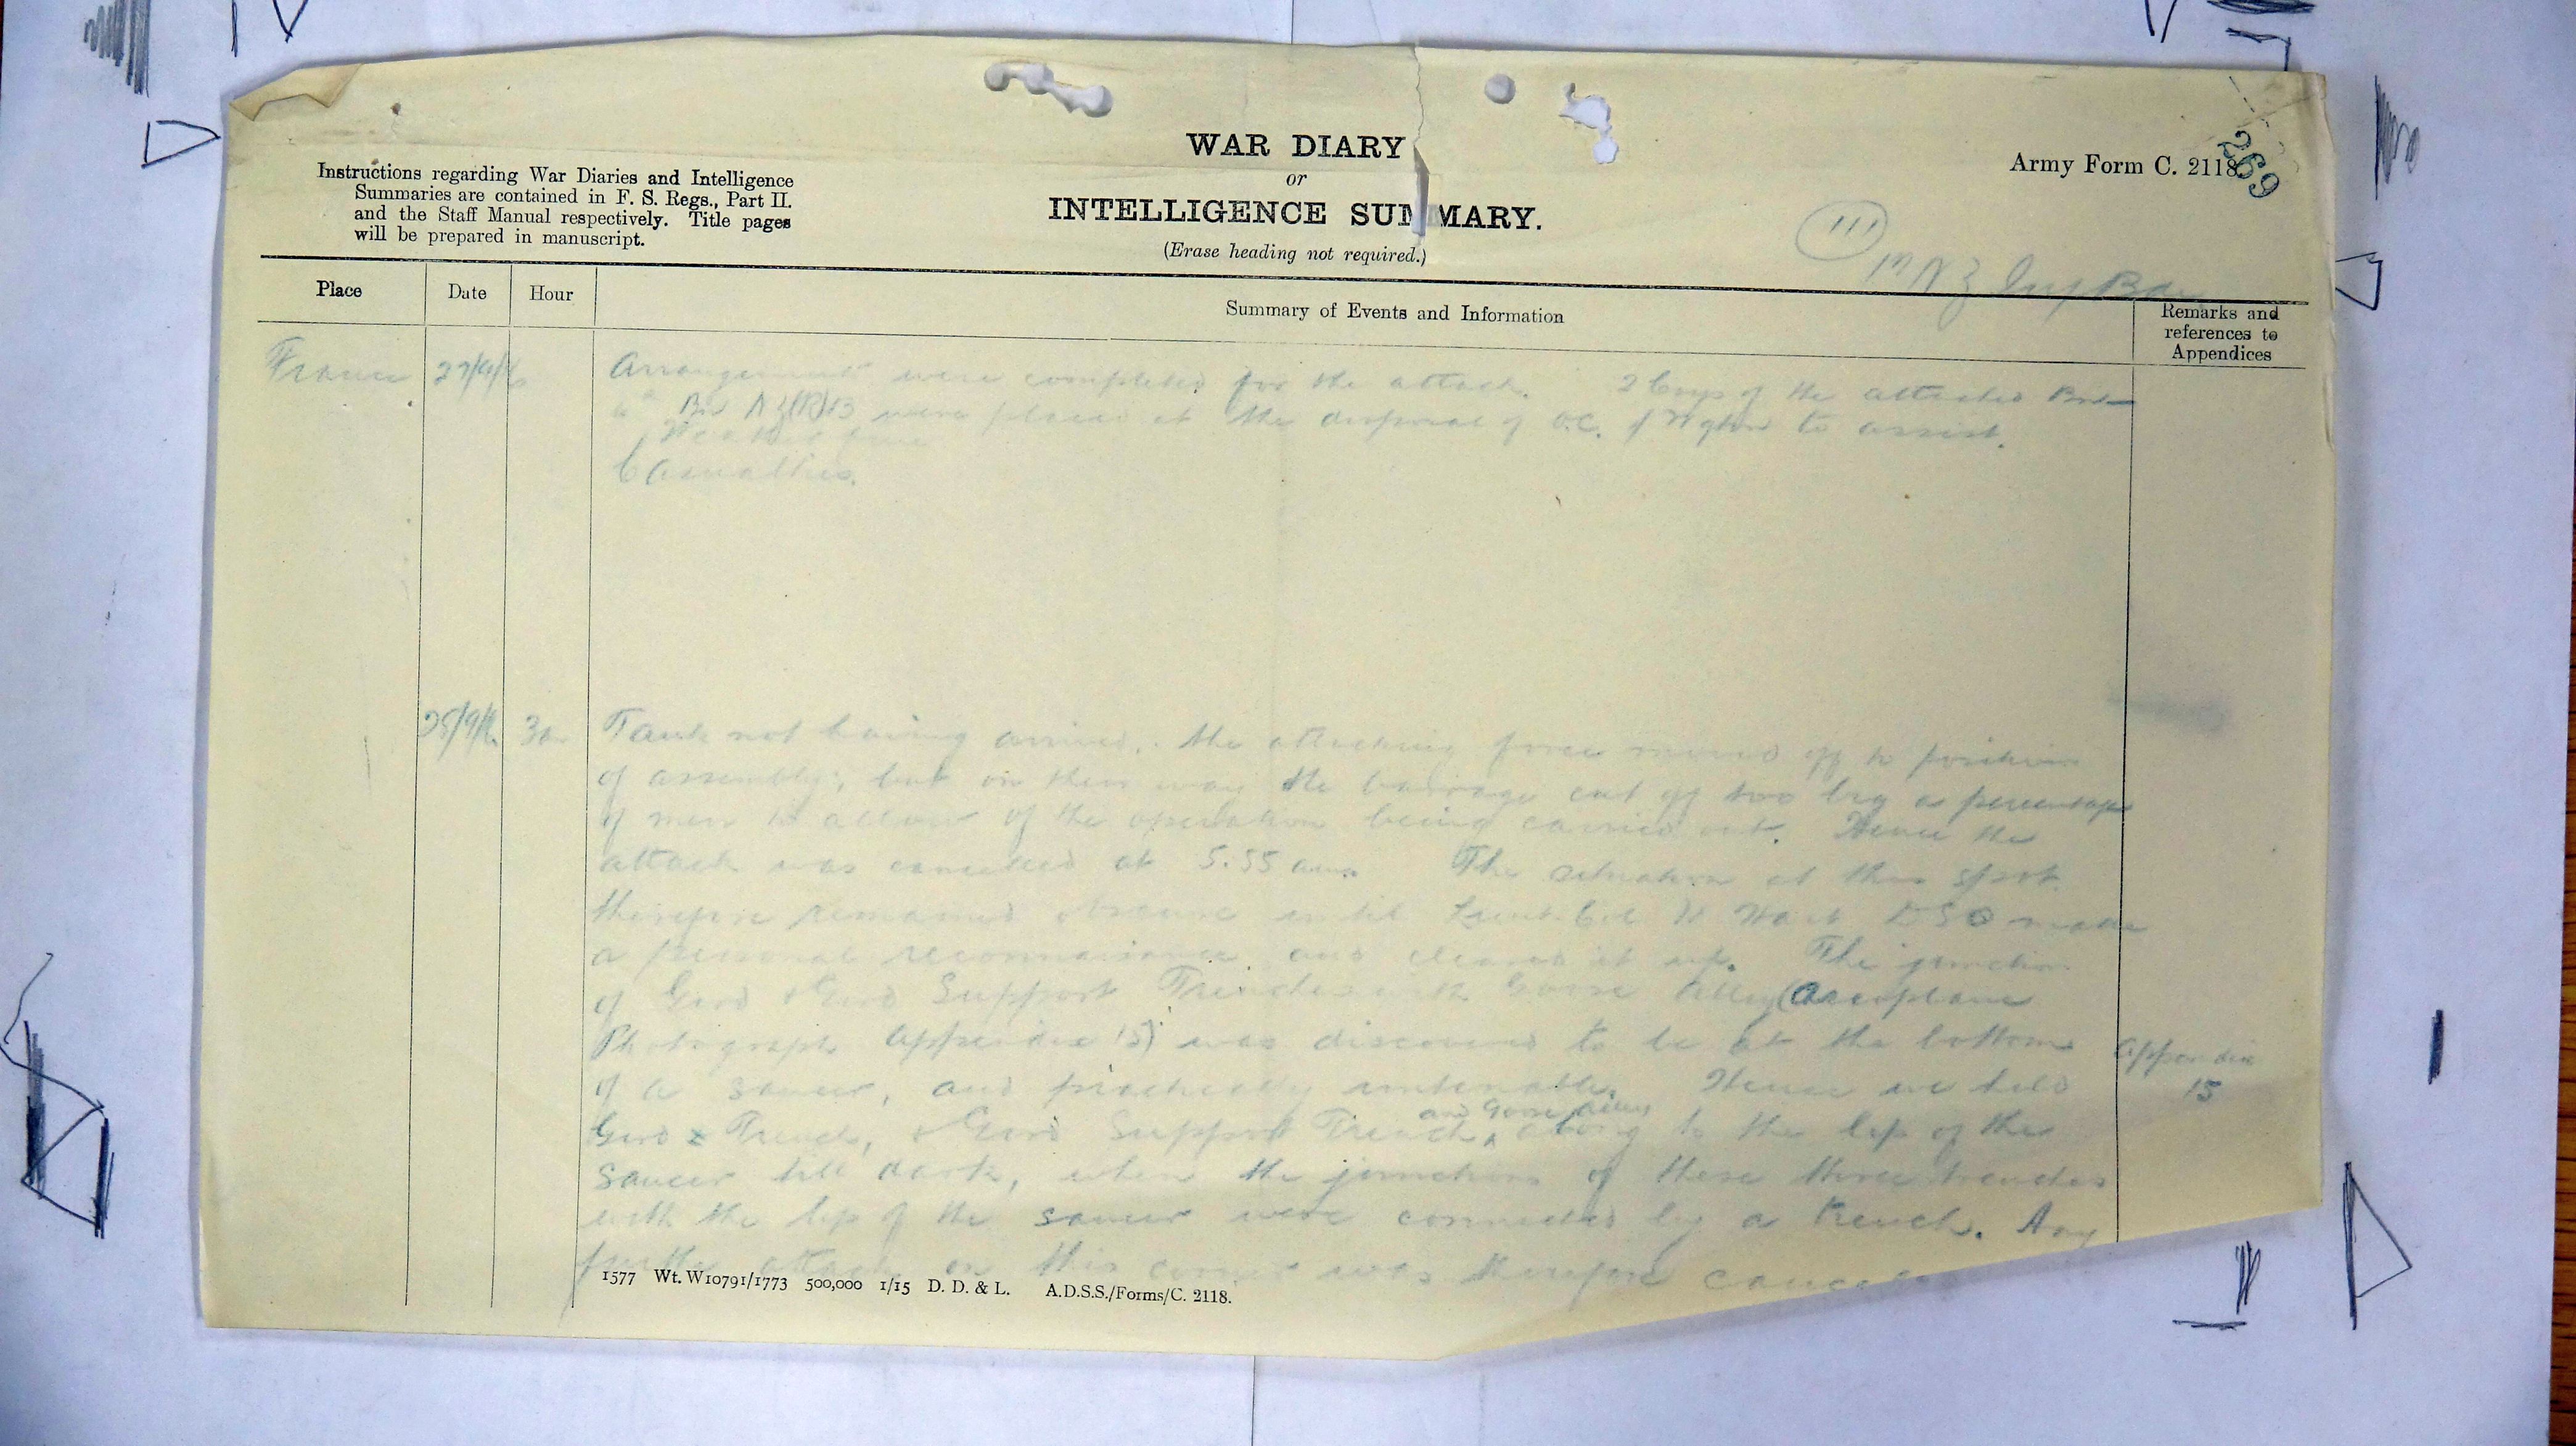 WAR DIARY
or
INTELLIGENCE SUMMARY.
(Erase heading not required.)
Instructions regarding War Diaries and Intelligence
Summaries are contained in F. S. Regs., Part II.
and the Staff Manual respectively. Title pages
will be prepared in manuscript.
Army Form C. 2118.
269
111
NZ Inf Bde
Place
Date
Hour
Summary of Events and Information
Remarks and
references to
Appendices
France
Arrangements were completed for the attack. 2 Coys of the attached
NZ(R)B were placed at the disposal of O.C. to assist.
Weather fine
Casualties.
Tank not having arrived, the attacking force moved off to positions
of assembly; but on their way the barrage cut off too big a percentage
of men to allow of the operation being carried out. Hence the
attack was cancelled at 5.55 am. The situation at this spot
therefore remained obscure until Lieut. Col. H Hart DSO made
a personal reconnaissance and cleared it up. The junction
of Gird & Gird Support Trenches with Goose Alley (Aeroplane
Photograph Appendix 15) was discovered to be at the bottom
of a saucer, and practically untenable. Hence we held
Gird Trench, & Gird Support Trench, and Goose Alley along to the lip of the
saucer till dark, when the junctions of these three trenches
with the lip of the saucer were connected by a trench. Any
further attack on this corner was therefore
Appendix
15
1577 Wt. W10791/1773 500,000 1/15 D. D. & L. A.D.S.S./Forms/C. 2118.